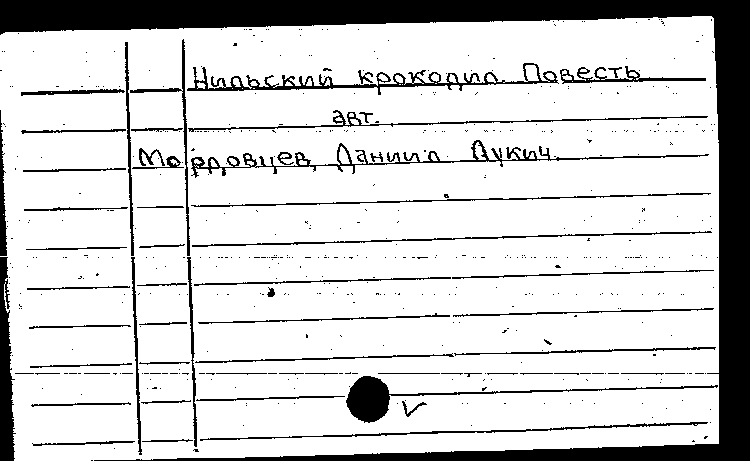 Нильский крокодил. Повесть
авт.
Мордовцев, Даниил Лукич.